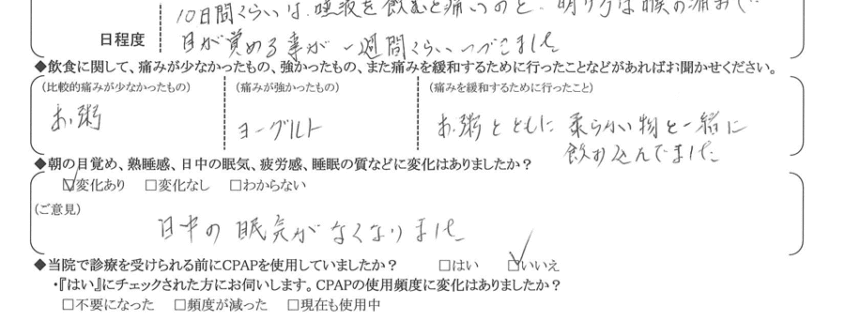 10日間くらいは、唾液を飲むと痛いのと、明け方は喉の痛みで
日程度
目が覚める事が一週間くらいつづきました
◆飲食に関して、痛みが少なかったもの、強かったもの、また痛みを緩和するために行ったことなどがあればお聞かせください。
(比較的痛みが少なかったもの) (痛みが強かったもの) (痛みを緩和するために行ったこと)
お粥 ヨーグルト お粥とともに 柔らかい物と一緒に
飲み込んでました
◆朝の目覚め、熟睡感、日中の眠気、疲労感、睡眠の質などに変化はありましたか?
☑変化あり □変化なし □わからない
(ご意見)
日中の眠気がなくなりました
◆当院で診療を受けられる前にCPAPを使用していましたか? □はい ☑いいえ
・『はい』にチェックされた方にお伺いします。CPAPの使用頻度に変化はありましたか?
□不要になった □頻度が減った □現在も使用中